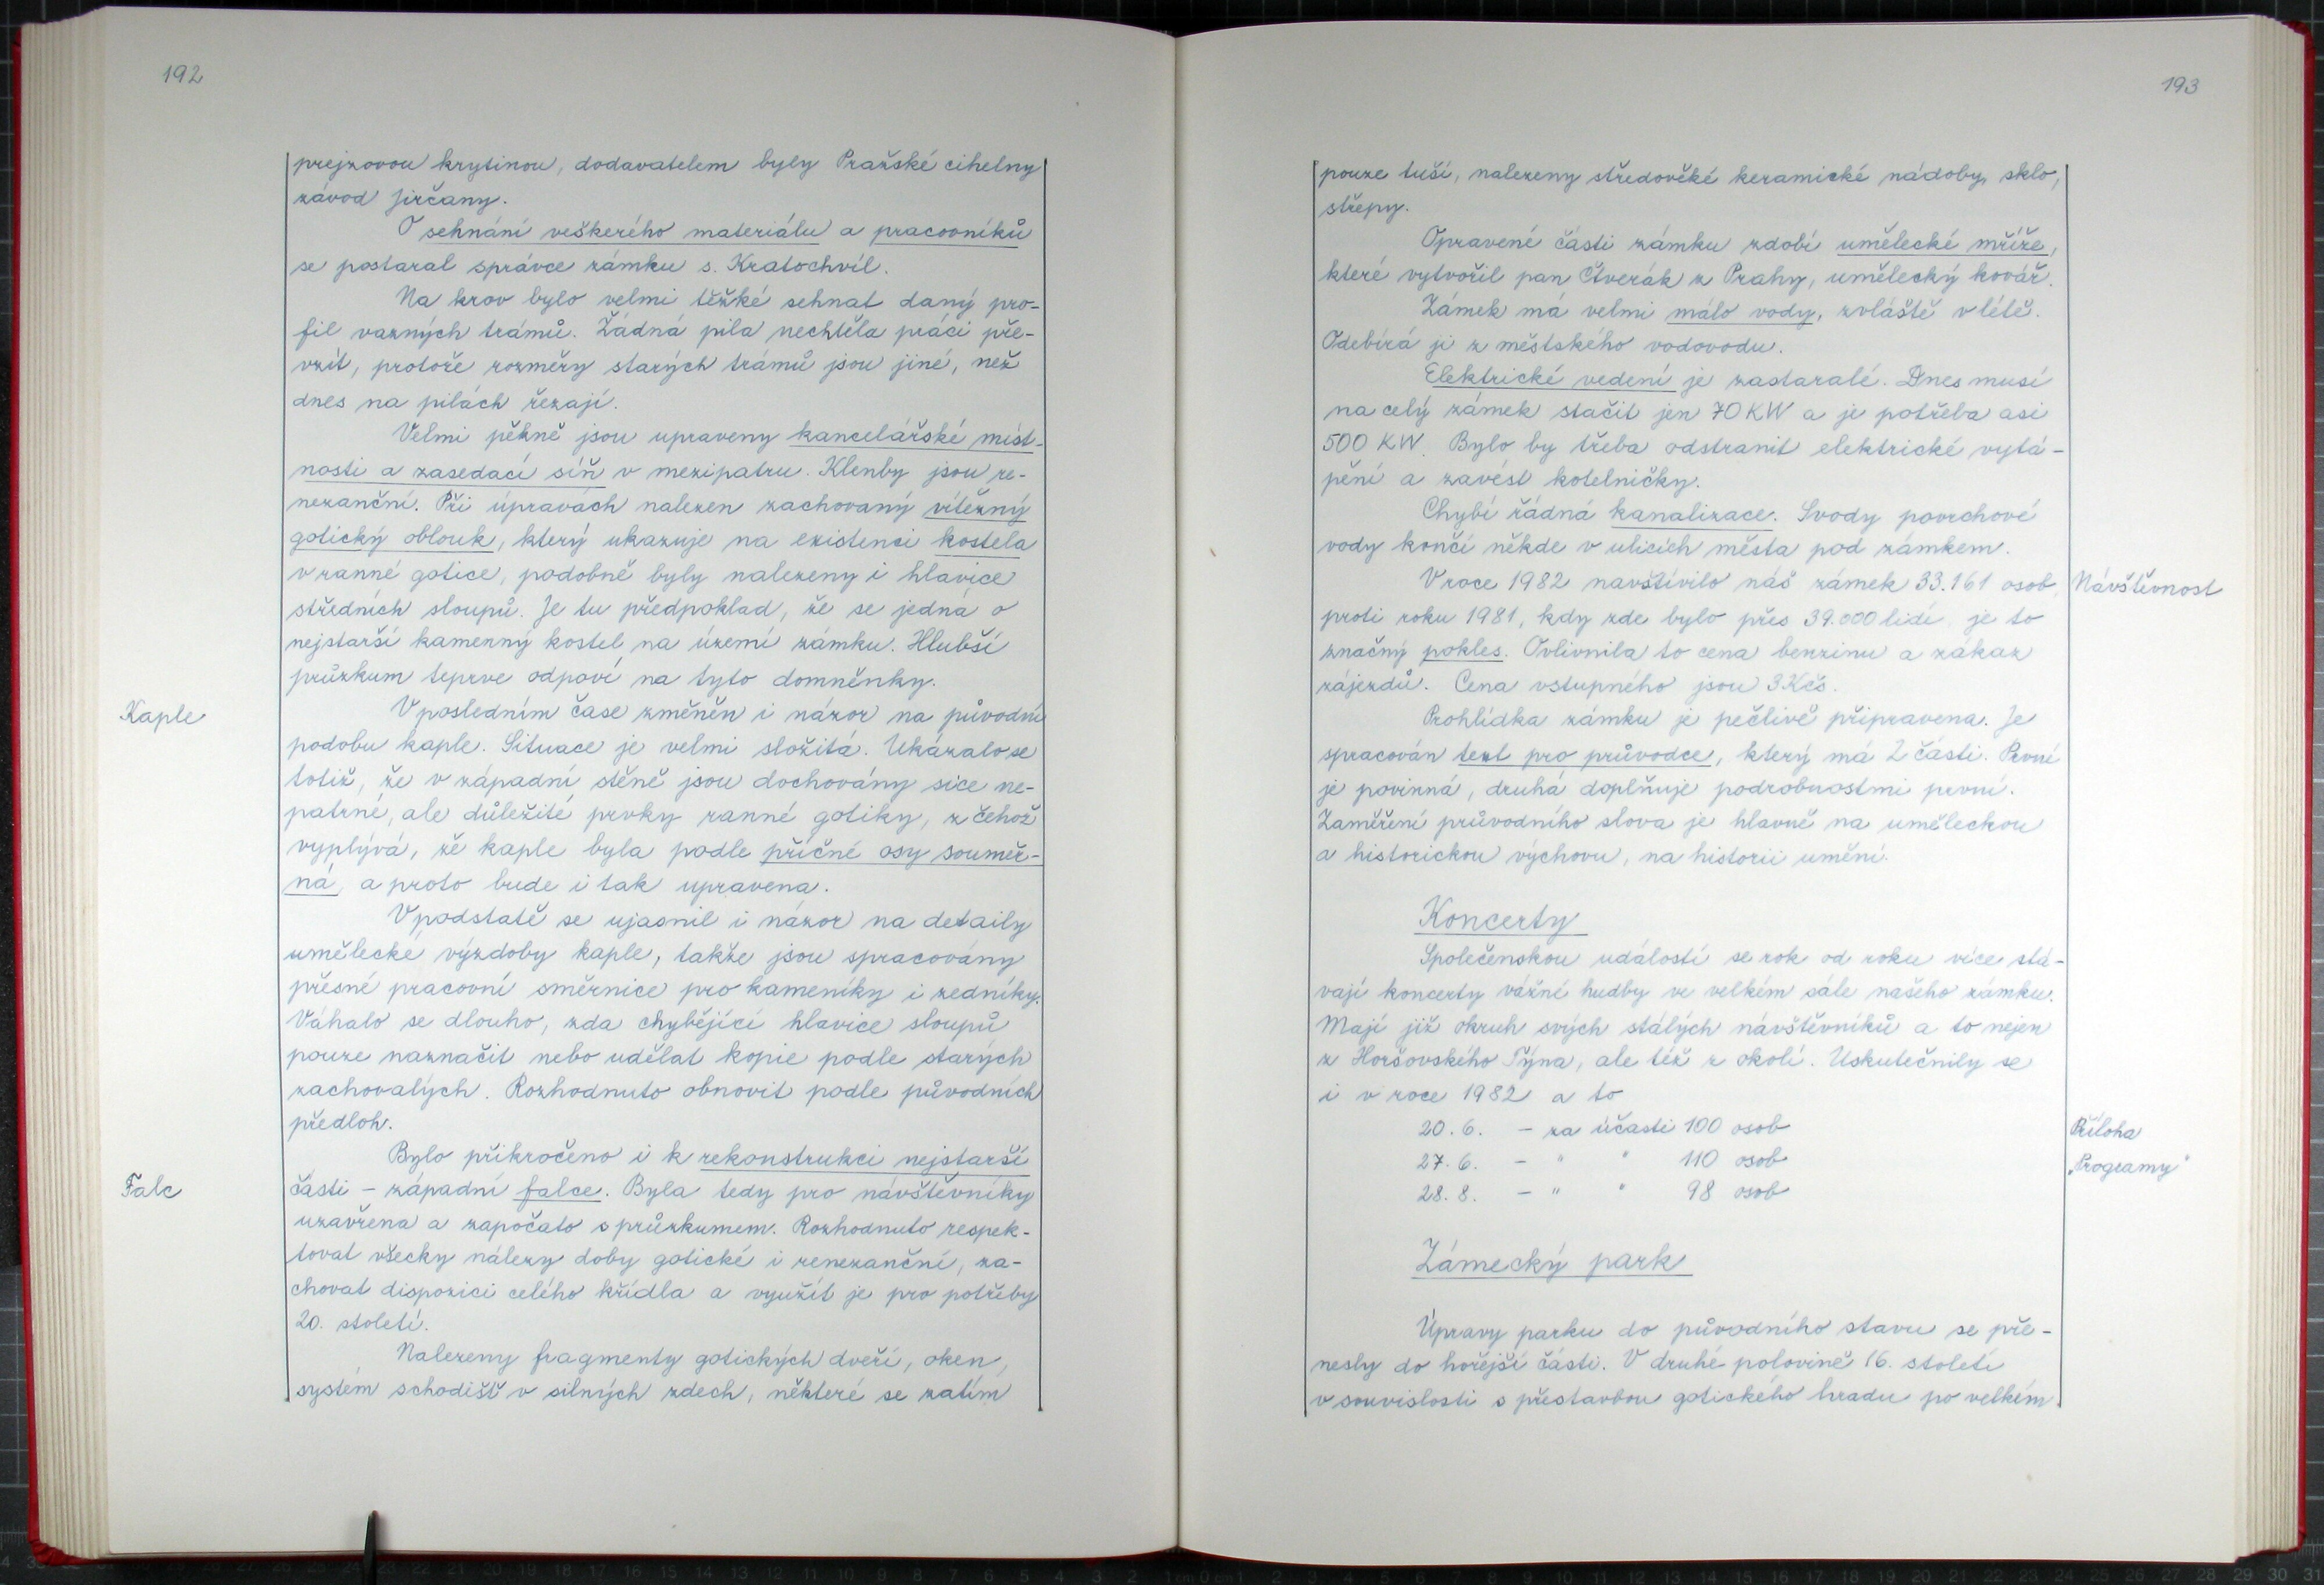 192
prejzovou krytinou, dodavatelem byly Pražské cihelny
závod Jirčany.
O sehnání veškerého materiálu a pracovníků
se postaral správce zámku s. Kratochvíl.
Na krov bylo velmi těžké sehnat daný pro-
fil vazných trámů. Žádná pila nechtěla práci pře-
vzít, protože rozměry starých trámů jsou jiné, než
dnes na pilách řezají.
Velmi pěkně jsou upraveny kancelářské míst-
nosti a zasedací síň v mezipatru. Klenby jsou re-
nezanční. Při úpravách nalezen zachovaný vítězný
gotický oblouk, který ukazuje na existenci kostela
v ranné gotice, podobně byly nalezeny i hlavice
středních sloupů. Je tu předpoklad, že se jedná o
nejstarší kamenný kostel na území zámku. Hlubší
průzkum teprve odpoví na tyto domněnky.
Kaple
V posledním čase změněn i názor na původní
podobu kaple. Situace je velmi složitá. Ukázalo se
totiž, že v západní stěně jsou dochovány sice ne-
patrné, ale důležité prvky ranné gotiky, z čehož
vyplývá, že kaple byla podle příčné osy souměr-
ná, a proto bude i tak upravena.
V podstatě se ujasnil i názor na detaily
umělecké výzdoby kaple, takže jsou spracovány
přesné pracovní směrnice pro kameníky i zedníky.
Váhalo se dlouho, zda chybějící hlavice sloupů
pouze naznačit nebo udělat kopie podle starých
zachovalých. Rozhodnuto obnovit podle původních
předloh.
Bylo přikročeno i k rekonstrukci nejstarší
Falc
části - západní falce. Byla tedy pro návštěvníky
uzavřena a započato s průzkumem. Rozhodnuto respek-
tovat všecky nálezy doby gotické i renezanční, za-
chovat dispozici celého křídla a využít je pro potřeby
20. století.
Nalezeny fragmenty gotických dveří, oken,
systém schodišť v silných zdech, některé se zatím
193
pouze tuší, nalezeny středověké keramické nádoby, sklo,
střepy.
Opravené části zámku zdobí umělecké mříže,
které vytvořil pan Čtverák z Prahy, umělecký kovář.
Zámek má velmi málo vody, zvláště v létě.
Odebírá ji z městského vodovodu.
Elektrické vedení je zastaralé. Dnes musí
na celý zámek stačit jen 70 KW a je potřeba asi
500 KW. Bylo by třeba odstranit elektrické vytá-
pění a zavést kotelničky.
Chybí řádná kanalizace. Svody povrchové
vody končí někde v ulicích města pod zámkem.
V roce 1982 navštívilo náš zámek 33.161 osob,
Návštěvnost
proti roku 1981, kdy zde bylo přes 39.000 lidí je to
značný pokles. Ovlivnila to cena benzinu a zákaz
zájezdů. Cena vstupného jsou 3 Kčs.
Prohlídka zámku je pečlivě připravena. Je
spracován text pro průvodce, který má 2 části. První
je povinná, druhá doplňuje podrobnostmi první.
Zaměření průvodního slova je hlavně na uměleckou
a historickou výchovu, na historii umění.
Koncerty
Společenskou událostí se rok od roku více stá-
vají koncerty vážné hudby ve velkém sále našeho zámku.
Mají již okruh svých stálých návštěvníků a to nejen
z Horšovského Týna, ale též z okolí. Uskutečnily se
i v roce 1982 a to
20. 6. - za účasti 100 osob
Příloha
27. 6. - " " 110 osob
„Programy"
28. 8. - " " 98 osob
Zámecký park
Úpravy parku do původního stavu se pře-
nesly do hořejší části. V druhé polovině 16. století
v souvislosti s přestavbou gotického hradu po velkém